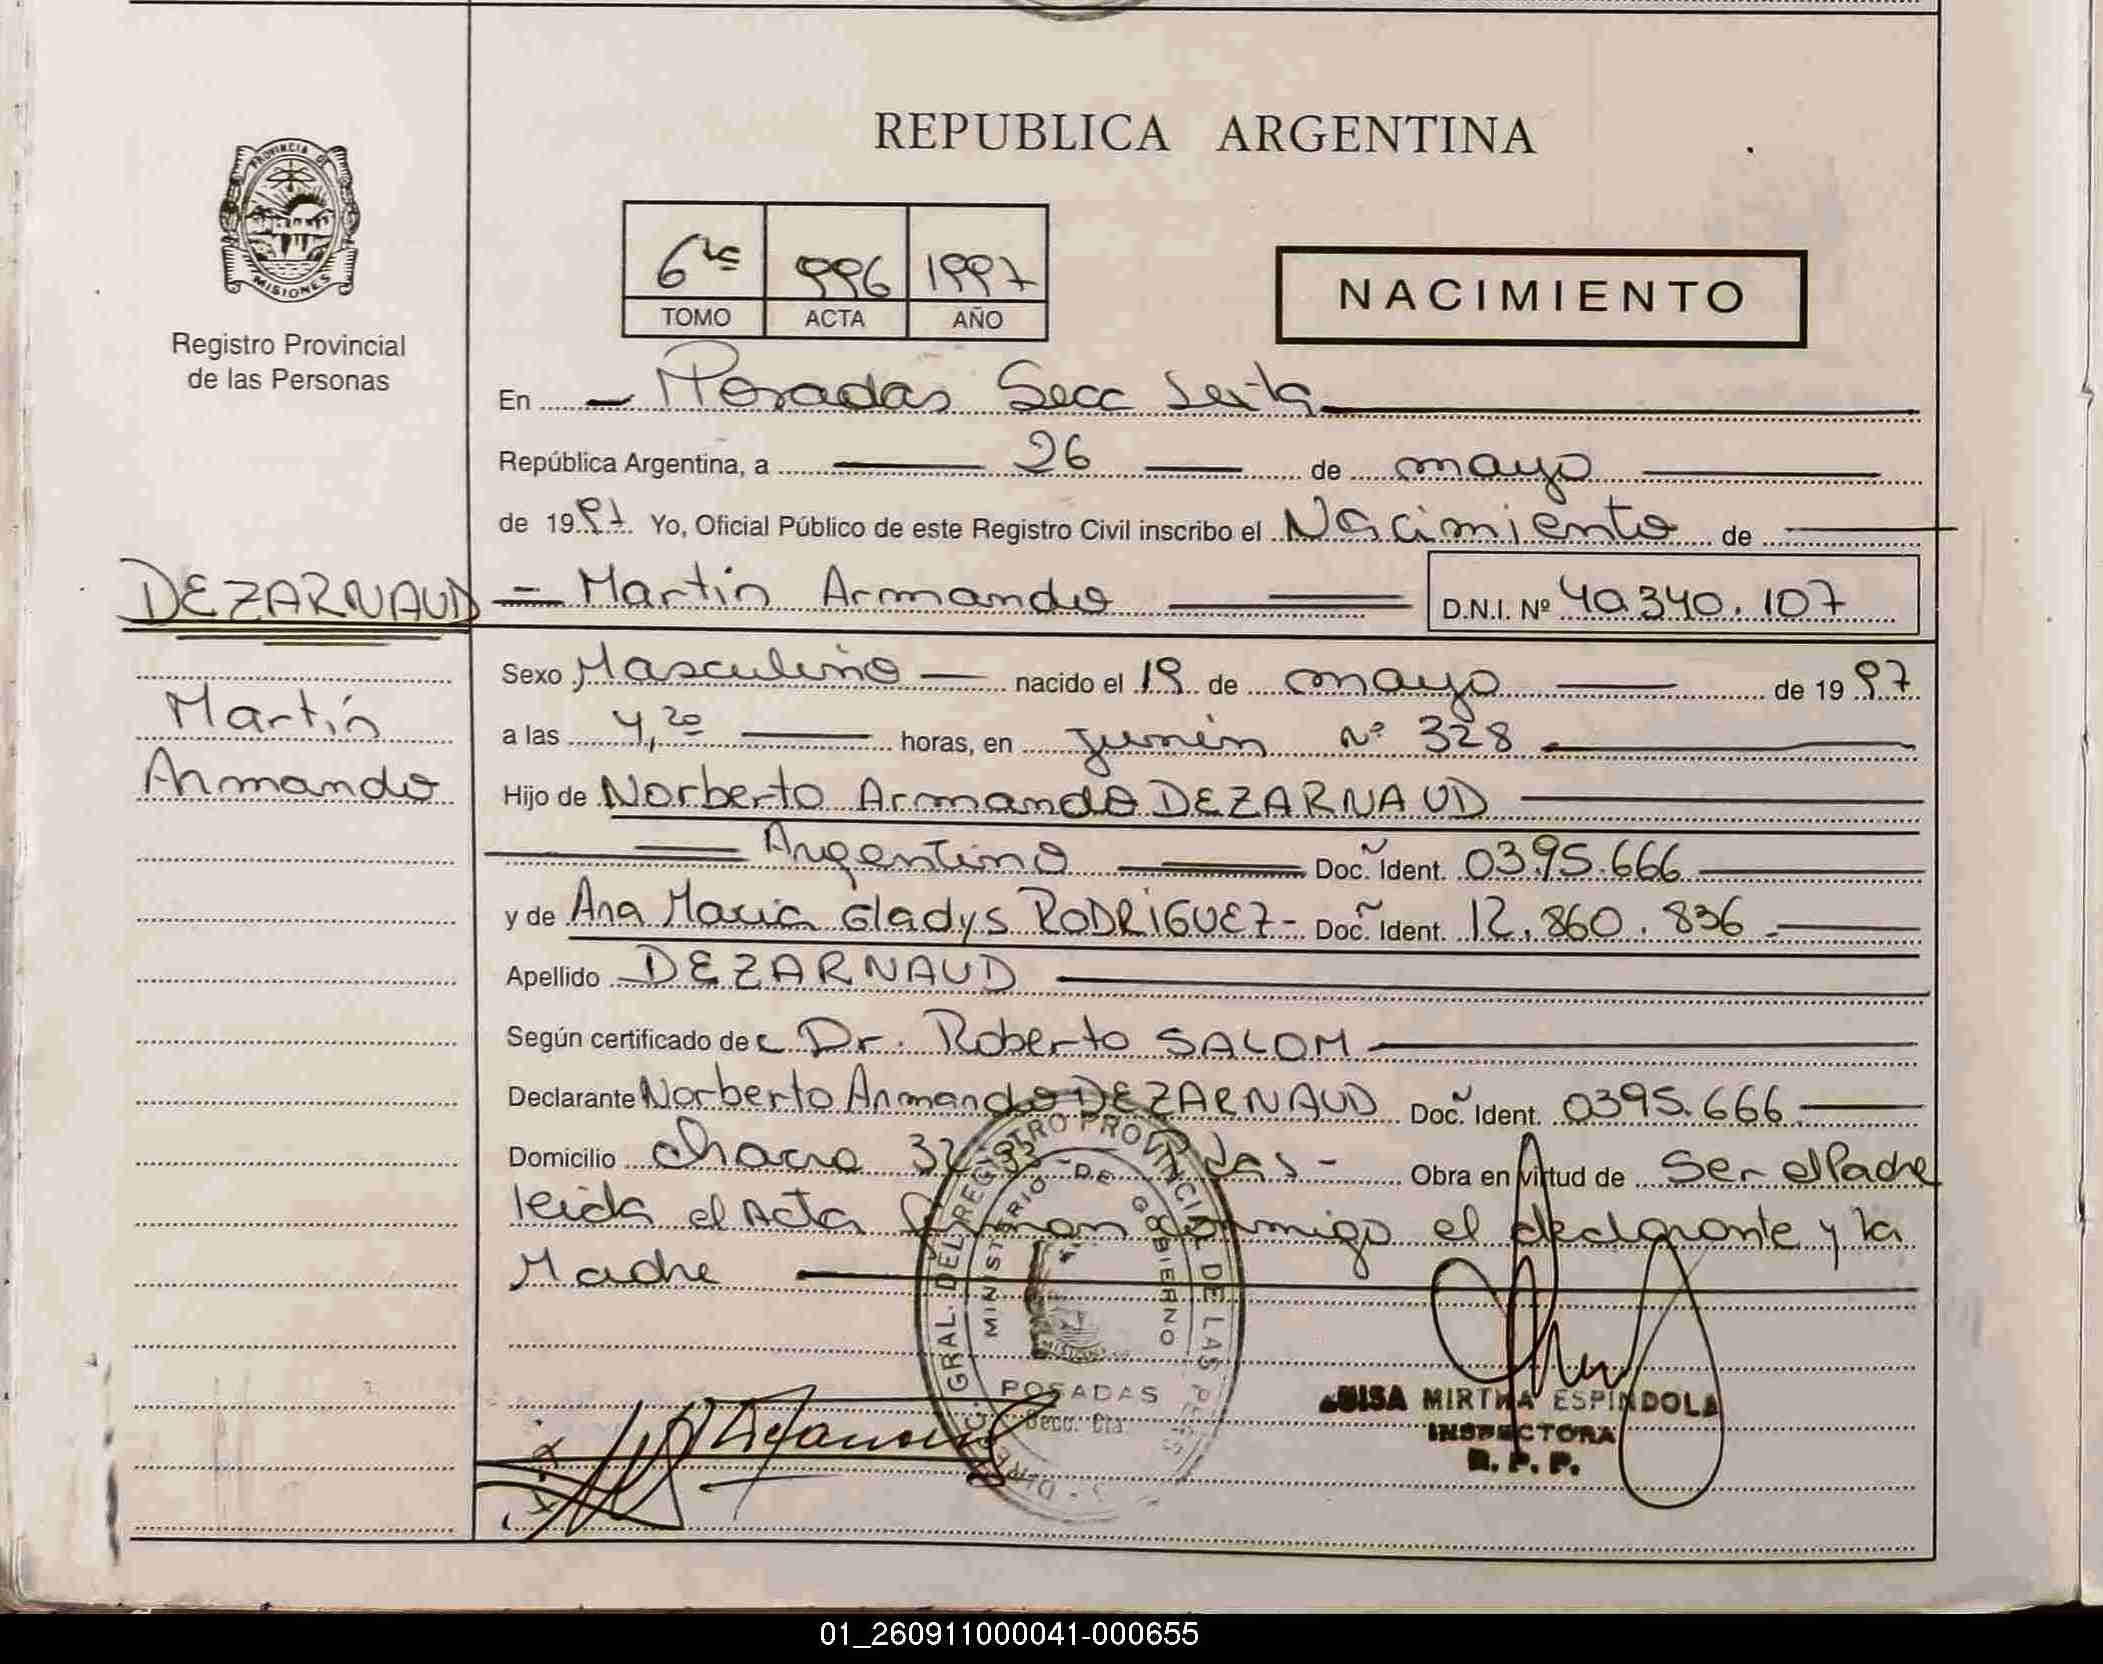 REPUBLICA ARGENTINA
PROVINCIA DE
MISIONES
Registro Provincial
de las Personas
996 1997
TOMO ACTA AÑO
NACIMIENTO
En Posadas Secc Sexta
República Argentina, a 26 de mayo
de 1997 Yo, Oficial Público de este Registro Civil inscribo el Nacimiento de
DEZARNAUD Martin Armando D.N.I. Nº 40.340.107
Martín
Armando
Sexo Masculino nacido el 19 de mayo de 1997
a las 4,20 horas, en Junín Nº 328
Hijo de Norberto Armando DEZARNAUD
Argentino Doc. Ident. 0395.666
y de Ana María Gladys RODRIGUEZ - Doc. Ident. 12.860.836
Apellido DEZARNAUD
Según certificado de Dr. Roberto SALOM
Declarante Norberto Armando DEZARNAUD Doc. Ident. 0395.666
Domicilio Chacra 32 33 Obra en virtud de Ser el Padre
leida el Acta firman conmigo el declarante y la
Madre
DIREC. GRAL. DEL REGISTRO PROVINCIAL DE LAS
MINISTERIO DE GOBIERNO
POSADAS
Secc. 6ta
LUISA MIRTHA ESPINDOLA
INSPECTORA
R. P. P.
01_260911000041-000655